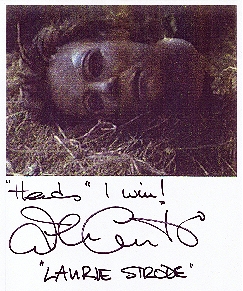 "Heads" I win!
"LAURIE STRODE"